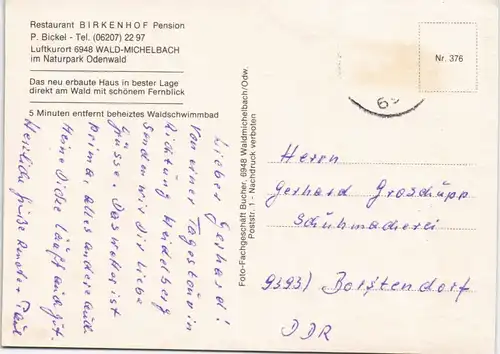 Restaurant BIRKENHOF Pension
P. Bickel - Tel. (06207) 22 97
Luftkurort 6948 WALD-MICHELBACH
im Naturpark Odenwald
Das neu erbaute Haus in bester Lage
direkt am Wald mit schönem Fernblick
5 Minuten entfernt beheiztes Waldschwimmbad
Lieber Gerhard!
Von einer Tagestour in
Richtung Heidelberg
senden wir Dir liebe
Grüsse. Das Wetter ist
prima. Alles andere auch
Heine Dicke läuft auch gut.
Herzliche Grüße Renate Paul
Foto-Fachgeschäft Bucher, 6948 Waldmichelbach/Odw.
Poststr. 1 - Nachdruck verboten
Nr. 376
Herrn
Gerhard Groschupp
Schuhmacherei
9393) Borstendorf
DDR